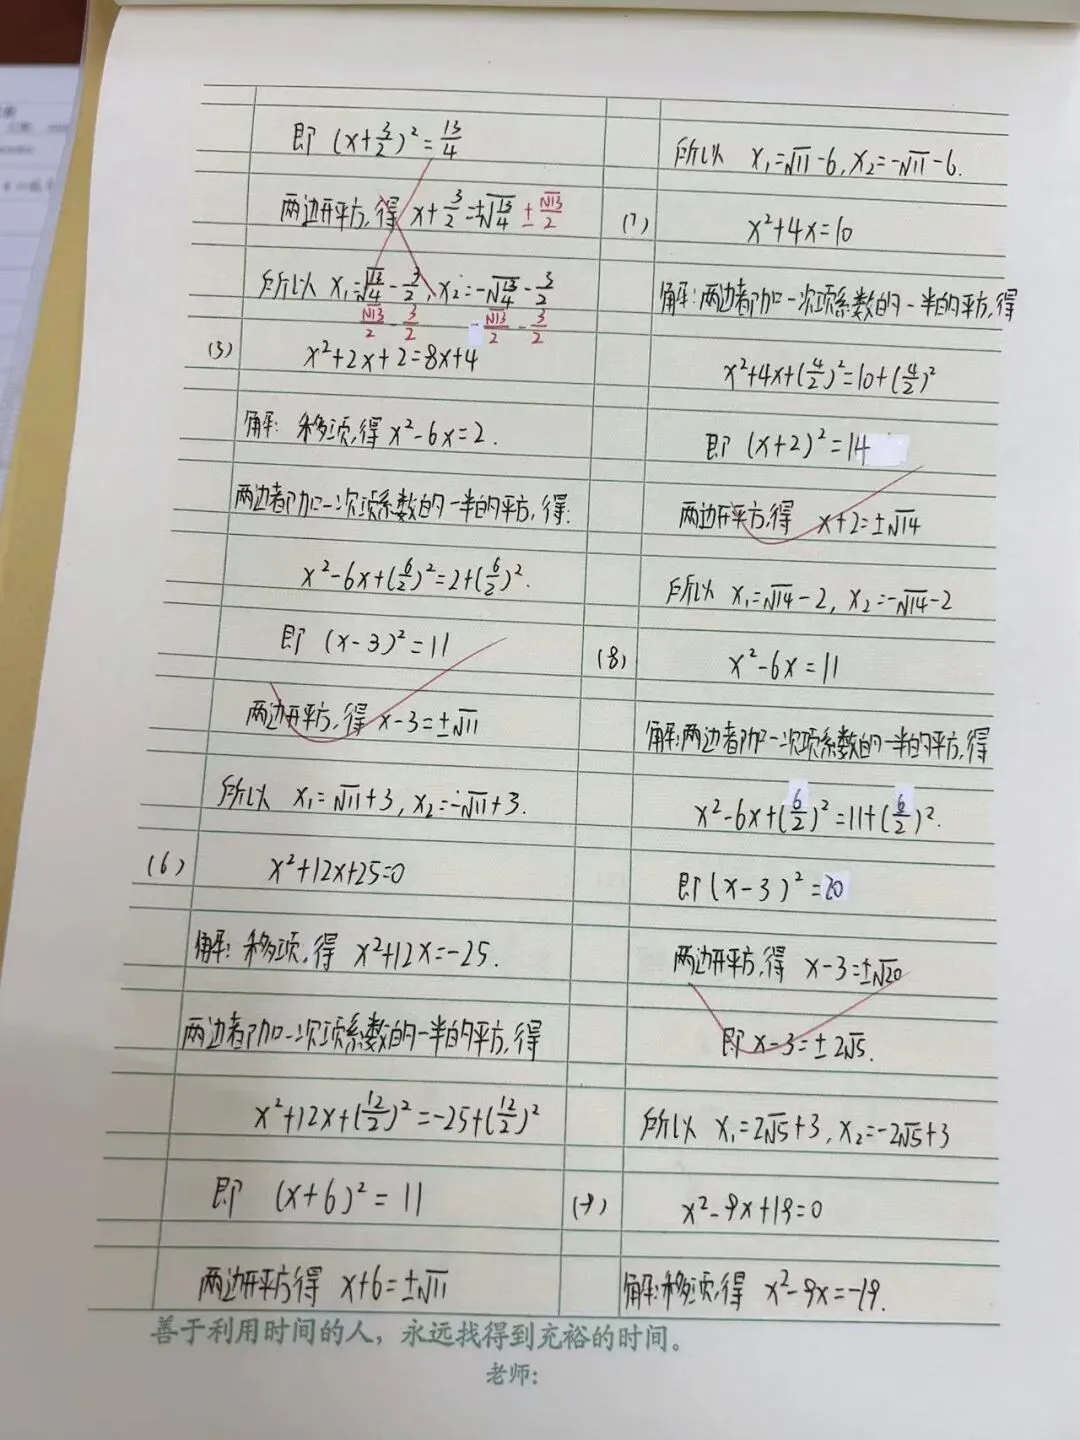 即 (x+3/2)²=13/4
两边开平方,得 x+3/2=±√13/4 ±√13/2
所以 x₁=√13/4-3/2, x₂=-√13/4-3/2
√13/2-3/2 -√13/2-3/2
(3) x²+2x+2=8x+4
解: 移项,得 x²-6x=2.
两边都加一次项系数的一半的平方,得:
x²-6x+(6/2)²=2+(6/2)².
即 (x-3)²=11
两边开平方,得 x-3=±√11
所以 x₁=√11+3, x₂=-√11+3.
(6) x²+12x+25=0
解: 移项,得 x²+12x=-25.
两边都加一次项系数的一半的平方,得
x²+12x+(12/2)²=-25+(12/2)²
即 (x+6)²=11
两边开平方得 x+6=±√11
所以 x₁=√11-6, x₂=-√11-6.
(7) x²+4x=10
解:两边都加一次项系数的一半的平方,得
x²+4x+(4/2)²=10+(4/2)²
即 (x+2)²=14
两边开平方,得 x+2=±√14
所以 x₁=√14-2, x₂=-√14-2
(8) x²-6x=11
解:两边都加一次项系数的一半的平方,得
x²-6x+(6/2)²=11+(6/2)².
即(x-3)²=20
两边开平方,得 x-3=±√20
即 x-3=±2√5.
所以 x₁=2√5+3, x₂=-2√5+3
(9) x²-9x+19=0
解:移项,得 x²-9x=-19.
善于利用时间的人，永远找得到充裕的时间。
老师: